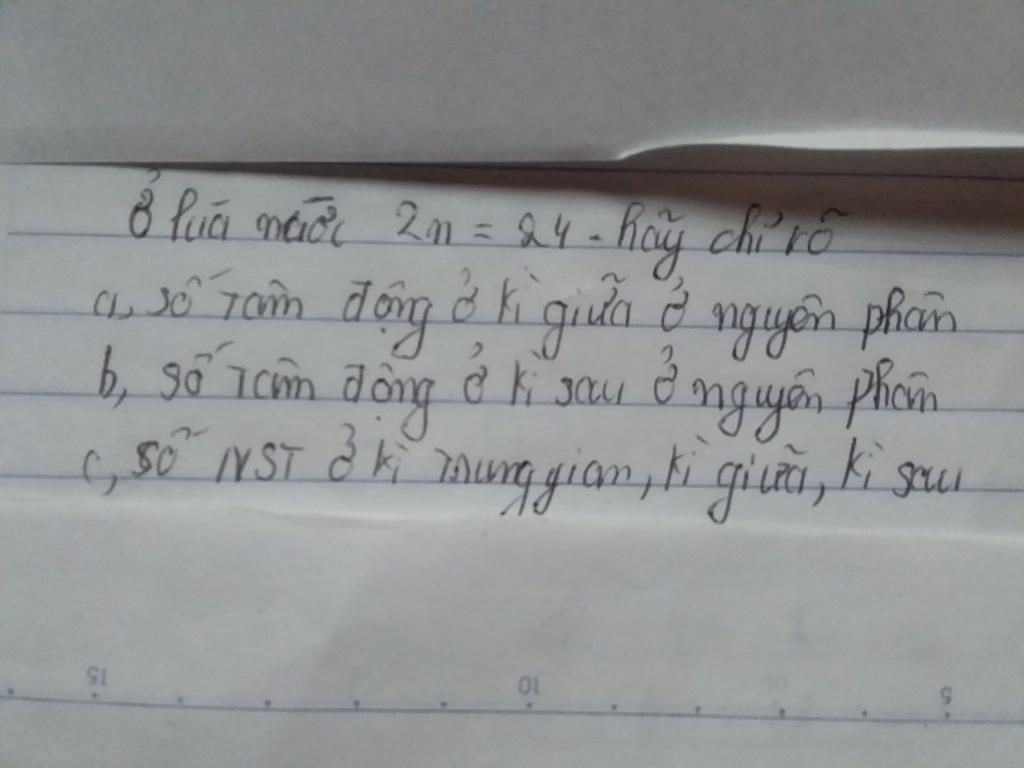 Ở lúa nước 2n = 24 - hãy chỉ rõ
a, số tâm động ở kì giữa ở nguyên phân
b, số tâm động ở kì sau ở nguyên phân
c, số NST ở kì trung gian, kì giữa, kì sau
15 10 5